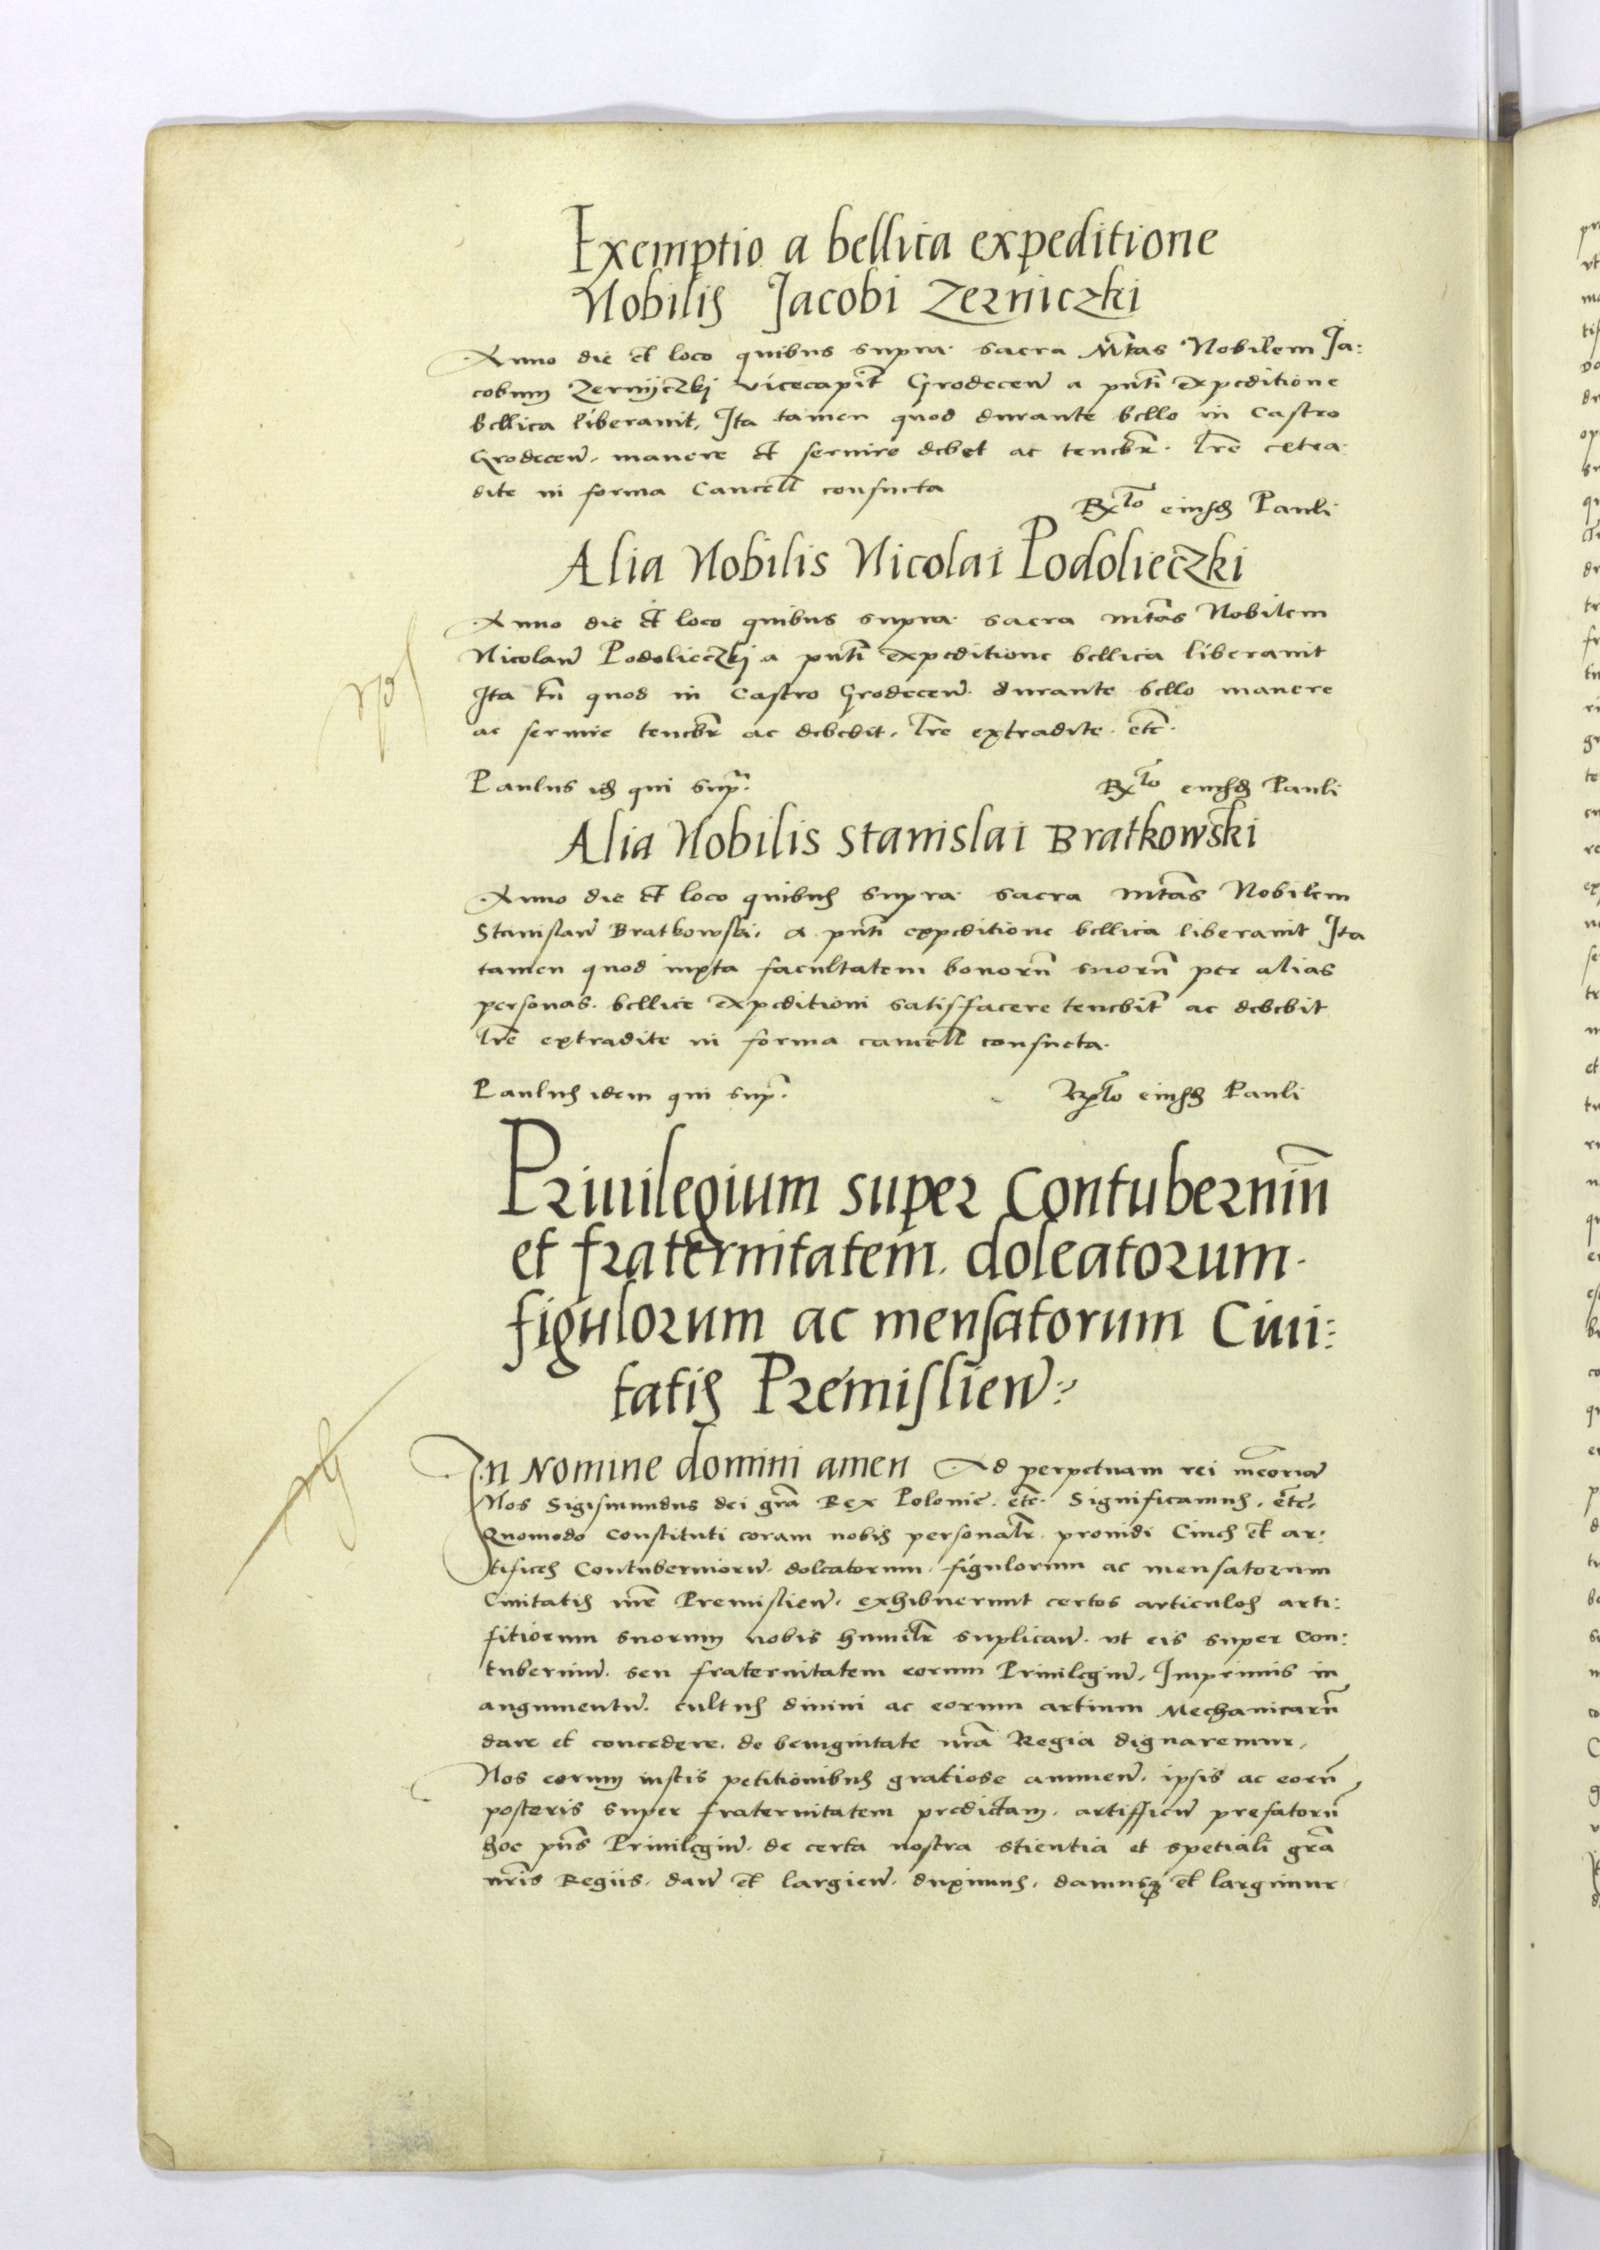 Exemptio a bellica expeditione
Nobilis Jacobi Zerniczki
Anno die et loco quibus supra sacra Mtas Nobilem Ja:
cobum Zernyczki vicecapit Grodecen a pnti expeditione
bellica liberauit, Ita tamen quod durante bello in Castro
Grodecen. manere et seruire debet ac tenebr. Lre extra
dite in forma Cancell consueta
Rlo eiusd Pauli
Alia Nobilis Nicolai Podolieczki
Anno die et loco quibus supra sacra mtas Nobilem
Nicolau Podolieczki a pnti expeditione bellica liberauit
Ita tn quod in Castro Grodecen. durante bello manere
ac seruire tenebr ac debedit. Lre extradite. etc.
Paulus id qui sup.
Rlo eiusd Pauli
Alia Nobilis Stanislai Bratkowski
Anno die et loco quibus supra sacra mtas Nobilem
Stanislau Bratkowski, a pnti expeditione bellica liberauit Ita
tamen quod iuxta facultatem bonoru suoru per alias
personas bellice expeditioni satisfacere tenebit ac debebit
Lre extradite in forma cancell consueta.
Paulus idem qui sup.
Rlo eiusd Pauli
Priuilegium super Contuberniu
et fraternitatem doleatorum
figulorum ac mensatorum Ciui:
tatis Premislien:
In Nomine domini amen Ad perpetuam rei meoria
Nos Sigismundus dei gra Rex Polonie. etc. Significamus. etc.
Quomodo constituti coram nobis personalr prouidi Ciues et ar:
tifices Contubernioru doleatorum figulorum ac mensatorum
Ciuitatis nre Premislien. exhibuerunt certos articulos arti:
fitiorum suorum nobis humilr suplican. vt eis super Con:
tuberniu seu fraternitatem eorum Priuilegiu, Imprimis in
augumentu cultus diuini ac eorum artium Mechanicaru
dare et concedere de benignitate nra Regia dignaremur,
Nos eorum iustis petitionibus gratiose annuen. ipsis ac eoru
posteris super fraternitatem predictam artifficiu prefatoru
hoc pns Priuilegiu de certa nostra stientia et spetiali gra
nris Regiis. dan et largien. duximus, damusq et largimur